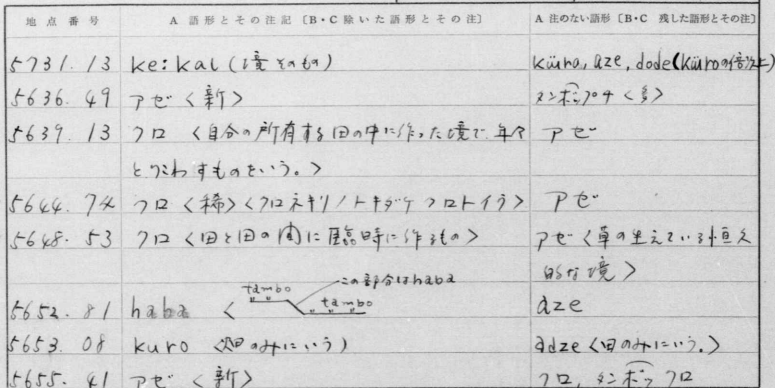 地点番号 A 語形とその注記〔B・C 除いた語形とその注〕 A 注のない語形〔B・C 残した語形とその注〕
5731.13 ke:kai (境そのもの) küro, aze, dode (küroの倍以上)
5636.49 アゼ〈新〉 タンボップチ〈多〉
5639.13 クロ〈自分の所有する田の中に作った境で、年々 アゼ
とりこわすものをいう。〉
5644.74 クロ〈稀〉〈クロネキリノトキダケクロトイウ〉 アゼ
5648.53 クロ〈田と田の間に臨時に作るもの〉 アゼ〈草の生えている恒久
的な境〉
この部分はhaba
tambo
5652.81 haba〈 tambo aze
5653.08 kuro〈畑のみにいう〉 adze〈田のみにいう。〉
5655.41 アゼ〈新〉 クロ, タンボックロ